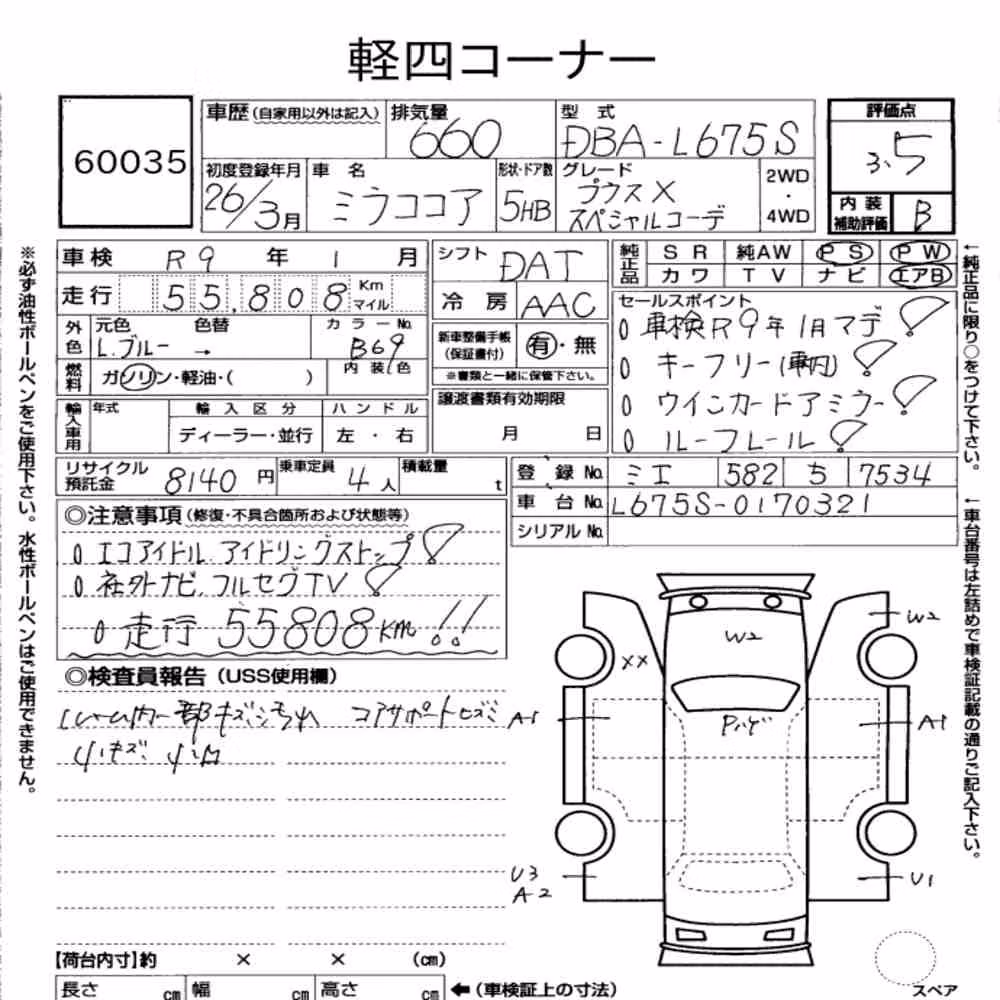 軽四コーナー
60035
車歴(自家用以外は記入) 排気量 660 型式 DBA-L675S
評価点 3.5
初度登録年月 26/3月 車名 ミラココア 形状・ドア数 5HB グレード プラスX スペシャルコーデ 2WD・4WD
内装補助評価 B
車検 R9年1月 シフト DAT
純正品 SR 純AW PS PW
カワ TV ナビ エアB
走行 55,808 Km マイル 冷房 AAC
セールスポイント
車検R9年1月マデ!
外色 元色 L.ブルー 色替 → カラーNo. B69
新車整備手帳(保証書付) 有・無
キーフリー(車内)!
燃料 ガソリン・軽油・( ) 内装色
※書類と一緒に保管下さい。
ウインカードアミラー!
輸入車用 年式 輸入区分 ハンドル
ディーラー・並行 左・右
譲渡書類有効期限 月 日
ルーフレール!
リサイクル預託金 8140円 乗車定員 4人 積載量 t
登録No. ミエ 582 ち 7534
車台No. L675S-0170321
シリアルNo.
◎注意事項(修復・不具合箇所および状態等)
エコアイドル.アイドリングストップ!
社外ナビ.フルセグTV!
走行 55808km!!
◎検査員報告(USS使用欄)
コアサポートヒズミ
小キズ 小凹
W2
W2
XX
A-1
A-1
U3
A-2
U1
【荷台内寸】約 × × (cm)
長さ cm 幅 cm 高さ cm ←(車検証上の寸法)
スペア
※必ず油性ボールペンをご使用下さい。水性ボールペンはご使用できません。
←純正品に限り○をつけて下さい。
←車台番号は左詰めで車検証記載の通りご記入下さい。